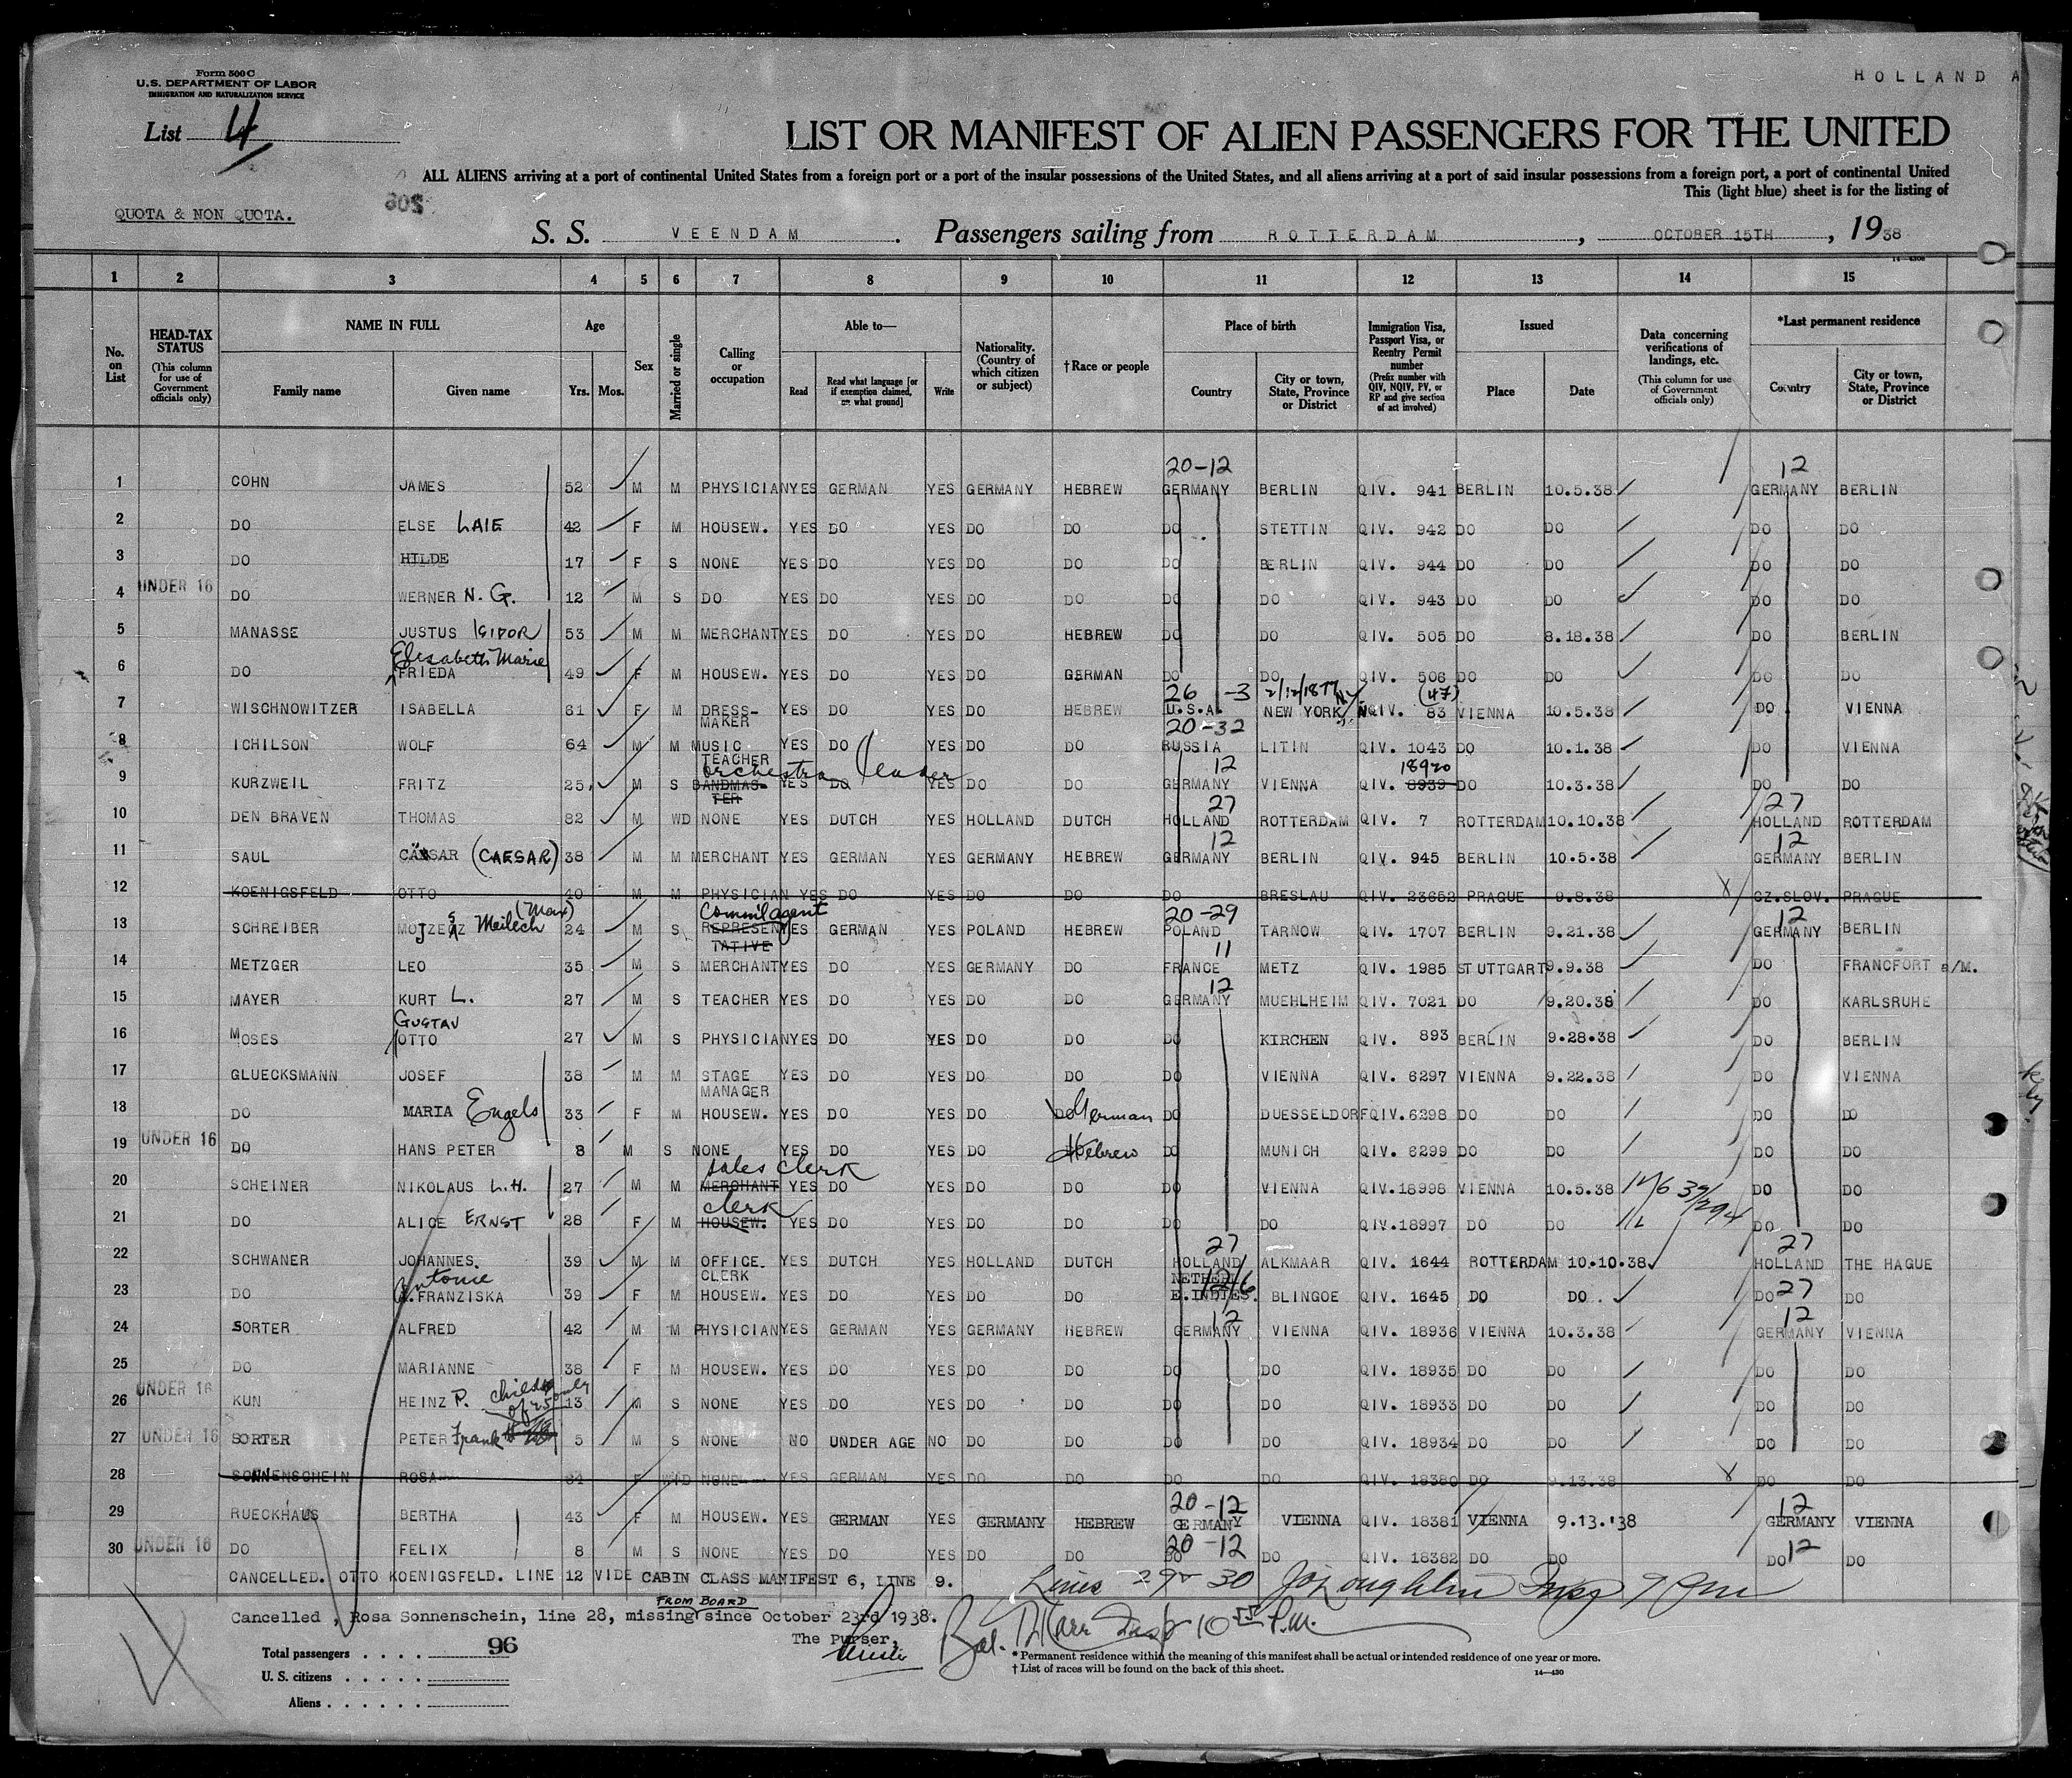 Form 500 C
U.S. DEPARTMENT OF LABOR
IMMIGRATION AND NATURALIZATION SERVICE
HOLLAND A
List 4
LIST OR MANIFEST OF ALIEN PASSENGERS FOR THE UNITED
ALL ALIENS arriving at a port of continental United States from a foreign port or a port of the insular possessions of the United States, and all aliens arriving at a port of said insular possessions from a foreign port, a port of continental United
This (light blue) sheet is for the listing of
QUOTA & NON QUOTA.
S. S. VEENDAM. Passengers sailing from ROTTERDAM, OCTOBER 15TH, 1938
1 2 3 4 5 6 7 8 9 10 11 12 13 14 15
No. on List
HEAD-TAX STATUS (This column for use of Government officials only)
NAME IN FULL Family name Given name
Age Yrs. Mos.
Sex
Married or single
Calling or occupation
Able to— Read Read what language [or if exemption claimed, on what ground] Write
Nationality. (Country of which citizen or subject)
†Race or people
Place of birth Country City or town, State, Province or District
Immigration Visa, Passport Visa, or Reentry Permit number (Prefix number with QIV, NQIV, PV, or RP and give section of act involved)
Issued Place Date
Data concerning verifications of landings, etc. (This column for use of Government officials only)
*Last permanent residence Country City or town, State, Province or District
20-12 12
1 COHN JAMES 52 M M PHYSICIAN YES GERMAN YES GERMANY HEBREW GERMANY BERLIN QIV. 941 BERLIN 10.5.38 GERMANY BERLIN
2 DO ELSE LAIE 42 F M HOUSEW. YES DO YES DO DO DO STETTIN QIV. 942 DO DO DO DO
3 DO HILDE 17 F S NONE YES DO YES DO DO DO BERLIN QIV. 944 DO DO DO DO
4 UNDER 16 DO WERNER N. G. 12 M S DO YES DO YES DO DO DO DO QIV. 943 DO DO DO DO
5 MANASSE JUSTUS ISIDOR 53 M M MERCHANT YES DO YES DO HEBREW DO DO QIV. 505 DO 8.18.38 DO BERLIN
Elisabeth Marie
6 DO FRIEDA 49 F M HOUSEW. YES DO YES DO GERMAN DO DO QIV. 506 DO DO DO DO
26 -3 2/12/1877 N.Y. (47)
7 WISCHNOWITZER ISABELLA 61 F M DRESS-MAKER YES DO YES DO HEBREW U.S.A. NEW YORK NQIV. 83 VIENNA 10.5.38 DO VIENNA
20-32
8 ICHILSON WOLF 64 M M MUSIC TEACHER YES DO YES DO DO RUSSIA LITIN QIV. 1043 DO 10.1.38 DO VIENNA
orchestra leader 12 18920
9 KURZWEIL FRITZ 25 M S BANDMAS-TER YES DO YES DO DO GERMANY VIENNA QIV. 8939 DO 10.3.38 DO DO
27 27
10 DEN BRAVEN THOMAS 82 M WD NONE YES DUTCH YES HOLLAND DUTCH HOLLAND ROTTERDAM QIV. 7 ROTTERDAM 10.10.38 HOLLAND ROTTERDAM
12 12
11 SAUL CÄSAR (CAESAR) 38 M M MERCHANT YES GERMAN YES GERMANY HEBREW GERMANY BERLIN QIV. 945 BERLIN 10.5.38 GERMANY BERLIN
12 KOENIGSFELD OTTO 40 M M PHYSICIAN YES DO YES DO DO DO BRESLAU QIV. 23652 PRAGUE 9.8.38 X CZ.SLOV. PRAGUE
(Max) Comm'l agent 20-29 12
13 SCHREIBER MOJZESZ Meilech 24 M S REPRESENTATIVE YES GERMAN YES POLAND HEBREW POLAND TARNOW QIV. 1707 BERLIN 9.21.38 GERMANY BERLIN
11
14 METZGER LEO 35 M S MERCHANT YES DO YES GERMANY DO FRANCE METZ QIV. 1985 STUTTGART 9.9.38 DO FRANCFORT a/M.
12
15 MAYER KURT L. 27 M S TEACHER YES DO YES DO DO GERMANY MUEHLHEIM QIV. 7021 DO 9.20.38 DO KARLSRUHE
GUSTAV
16 MOSES OTTO 27 M S PHYSICIAN YES DO YES DO DO DO KIRCHEN QIV. 893 BERLIN 9.28.38 DO BERLIN
17 GLUECKSMANN JOSEF 38 M M STAGE MANAGER YES DO YES DO DO DO VIENNA QIV. 6297 VIENNA 9.22.38 DO VIENNA
18 DO MARIA Engels 33 F M HOUSEW. YES DO YES DO DO German DO DUESSELDORF QIV. 6298 DO DO DO DO
19 UNDER 16 DO HANS PETER 8 M S NONE YES DO YES DO Hebrew DO MUNICH QIV. 6299 DO DO DO DO
sales clerk
20 SCHEINER NIKOLAUS L.H. 27 M M MERCHANT YES DO YES DO DO DO VIENNA QIV. 18998 VIENNA 10.5.38 DO DO
clerk
21 DO ALICE ERNST 28 F M HOUSEW. YES DO YES DO DO DO DO QIV. 18997 DO DO DO DO
27 27
22 SCHWANER JOHANNES. 39 M M OFFICE. CLERK YES DUTCH YES HOLLAND DUTCH HOLLAND ALKMAAR QIV. 1644 ROTTERDAM 10.10.38 HOLLAND THE HAGUE
Antonie
23 DO A. FRANZISKA 39 F M HOUSEW. YES DO YES DO DO NETHERL. E.INDIES. BLINGOE QIV. 1645 DO DO DO 27 DO
12 12
24 SORTER ALFRED 42 M M PHYSICIAN YES GERMAN YES GERMANY HEBREW GERMANY VIENNA QIV. 18936 VIENNA 10.3.38 GERMANY VIENNA
25 DO MARIANNE 38 F M HOUSEW. YES DO YES DO DO DO DO QIV. 18935 DO DO DO DO
26 UNDER 16 KUN HEINZ P. child of 25 only 13 M S NONE YES DO YES DO DO DO DO QIV. 18933 DO DO DO DO
27 UNDER 16 SORTER PETER Frank 5 M S NONE NO UNDER AGE NO DO DO DO DO QIV. 18934 DO DO DO DO
28 SONNENSCHEIN ROSA F WID NONE YES GERMAN YES DO DO DO DO QIV. 18380 DO 9.13.38 X DO DO
20-12 12
29 RUECKHAUS BERTHA 43 F M HOUSEW. YES GERMAN YES GERMANY HEBREW GERMANY VIENNA QIV. 18381 VIENNA 9.13.'38 GERMANY VIENNA
20-12
30 UNDER 16 DO FELIX 8 M S NONE YES DO YES DO DO DO DO QIV. 18382 DO DO DO 12 DO
CANCELLED. OTTO KOENIGSFELD. LINE 12 VIDE CABIN CLASS MANIFEST 6, LINE 9.
Lines 29 30
FROM BOARD
Cancelled, Rosa Sonnenschein, line 28, missing since October 23rd 1938.
The Purser,
Bal. Insp 10 P.M.
Total passengers .... 96
U. S. citizens .....
Aliens ......
* Permanent residence within the meaning of this manifest shall be actual or intended residence of one year or more.
† List of races will be found on the back of this sheet.
14—430